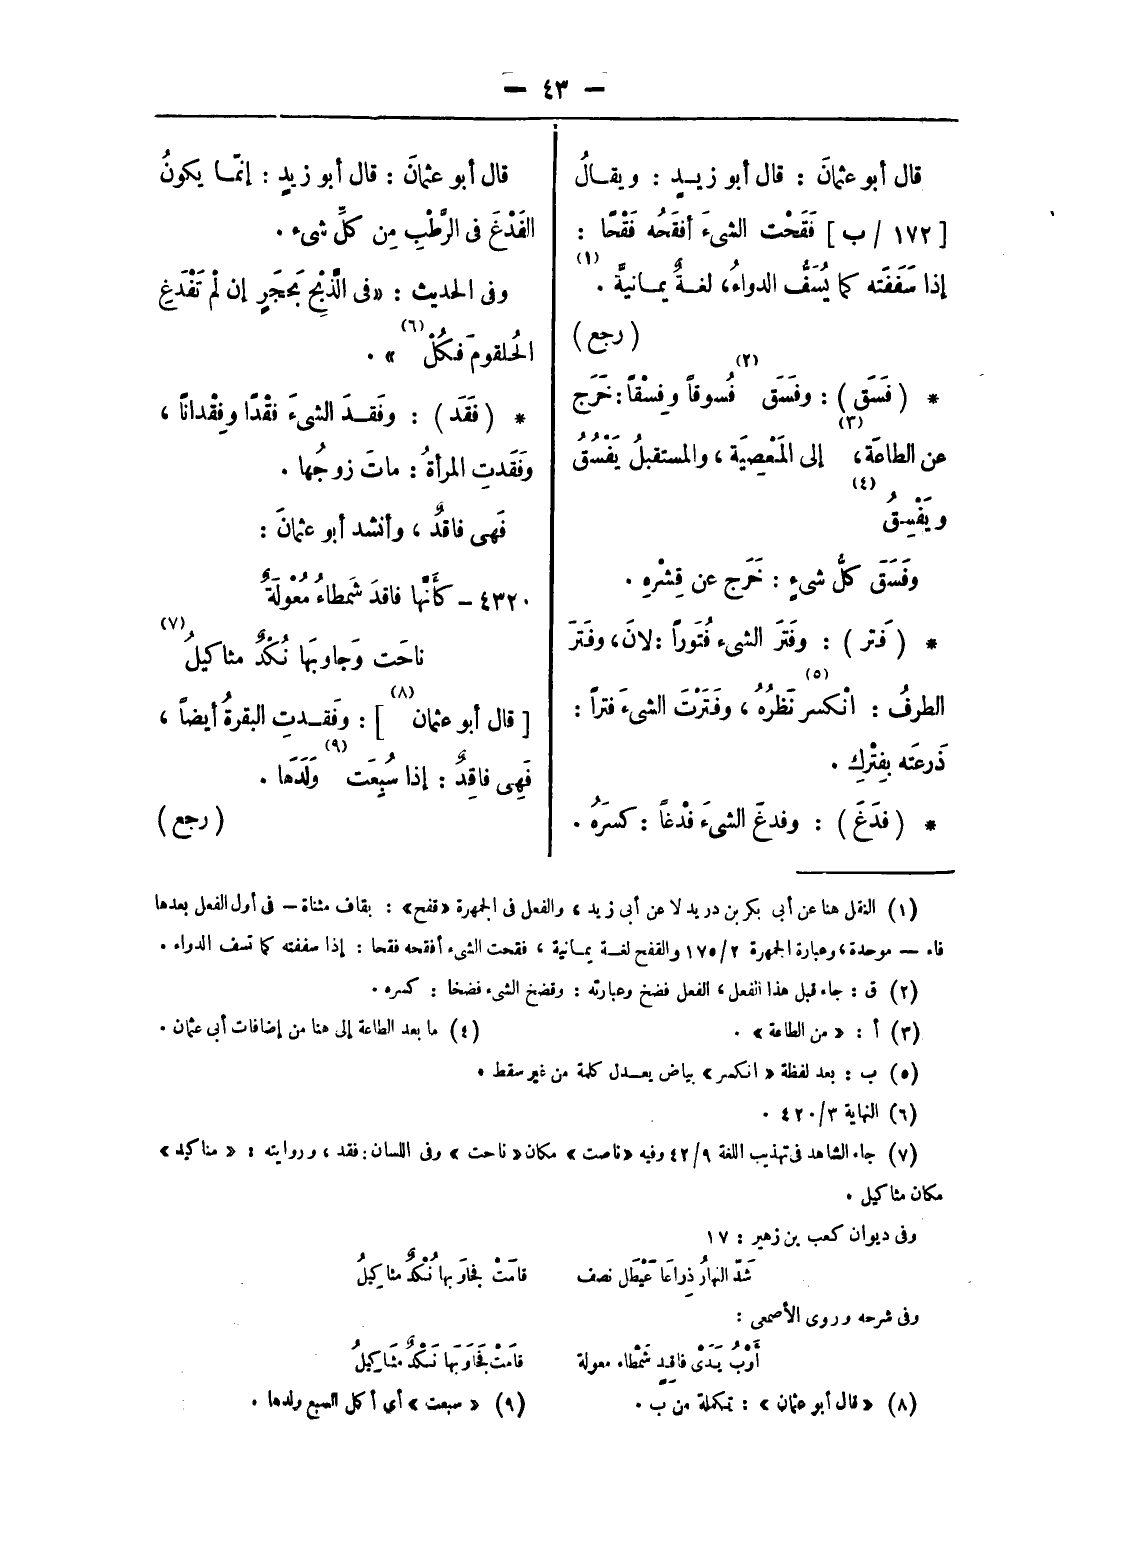 — ٤٣ —
قال أبو عثمانَ : قال أبو زيــدٍ : ويقــالُ
[ ١٧٢ / ب ] فَقَحْت الشىءَ أفقَحُه فَقْحًا :
إذا سَفَفَته كما يُسَفُّ الدواءُ، لغــةٌ يمــانيةً (١) .
( رجع )
* ( فَسَقَ ) : وفَسَق (٢) فُسوقاً وفِسْقاً : خَرَج
عن الطاعَة (٣)، إلى المَعْصِيَة ، والمستقبلُ يَفْسُقُ
ويَفْسِقُ (٤)
وفَسَقَ كلُّ شىءٍ : خَرَج عن قِشْرِهِ .
* ( فَتر ) : وفَترَ الشىء فُتُوراً : لانَ، وفَترَ
الطرفُ : انْكسر (٥) نَظَرُهُ ، وفَتَرْتَ الشىءَ فتراً :
ذَرعتَه بفِتْرِكِ .
* ( فدَغَ ) : وفدغَ الشىءَ فدْغاً : كسرَهُ .
قال أبو عثمانَ : قال أبو زيدٍ : إنّمــا يكونُ
الفَدْغَ فى الرَّطْبِ مِن كلِّ شىء .
وفى الحديث : «فى الذَّبْح بَحجَرٍ إن لْم تَفْدَغِ
الحُلقومَ فكُلْ (٦) » .
* ( فَقَد ) : وفَقــدَ الشىءَ فقْدًا وفِقْداناً ،
وفَقَدتِ المرأةُ : ماتَ زوجُها .
فَهى فاقدٌ ، وأنشد أبو عثمانَ :
٤٣٢٠ – كأَنَّها فاقدَ شَمطاءُ مُعْولَةٌ
ناحَت وَجاوبهَا نُكْدٌ مثاكيلُ (٧)
[ قال أبو عثمان (٨) ] : وفَقــدتِ البقرةُ أيضاً ،
فَهِى فاقِدٌ : إذا سُبِعَت (٩) وَلَدَها .
( رجع )
(١) النقل هنا عن أبي بكر بن دريد لا عن أبى زيد ، والفعل فى الجمهرة «قفح» : بقاف مثناة – فى أول الفعل بعدها
فاء – موحدة ، وعبارة الجمهرة ٢/ ١٧٥ والقفح لغــة يمــانية ، فقحت الشىء أفقحه فقحا : إذا سففته كما تسف الدواء .
(٢) ق : جاء قبل هذا الفعل ، الفعل فضخ وعبارته : وفضخ الشىء فضخا : كسره .
(٣) أ : « من الطاعة » .
(٤) ما بعد الطاعة إلى هنا من إضافات أبى عثمان .
(٥) ب : بعد لفظة « انكسر » بياض يعــدل كلمة من غير سقط .
(٦) النهاية ٣/ ٤٢٠ .
(٧) جاء الشاهد فى تهذيب اللغة ٩/ ٤٢ وفيه «ناصت» مكان «ناحت» وفى اللسان : فقد ، وروايته : « مناكيد »
مكان مثاكيل .
وفى ديوان كعب بن زهير : ١٧
شَدَّ النهارُ ذِراعَا عَيْطَل نصف   قامَتْ فجاوَبها نُكْدٌ مثاكِيلُ
وفى شرحه وروى الأصمعى :
أَوْبُ يَدَىْ فاقِدٍ شَمْطَاء معولة   قامَتْ فجَاوَبَهَا نَكْدٌ مثَاكِيلُ
(٨) « قال أبو عثمان » : تكملة من ب .
(٩) « سبعت » أي أكل السبع ولدها .